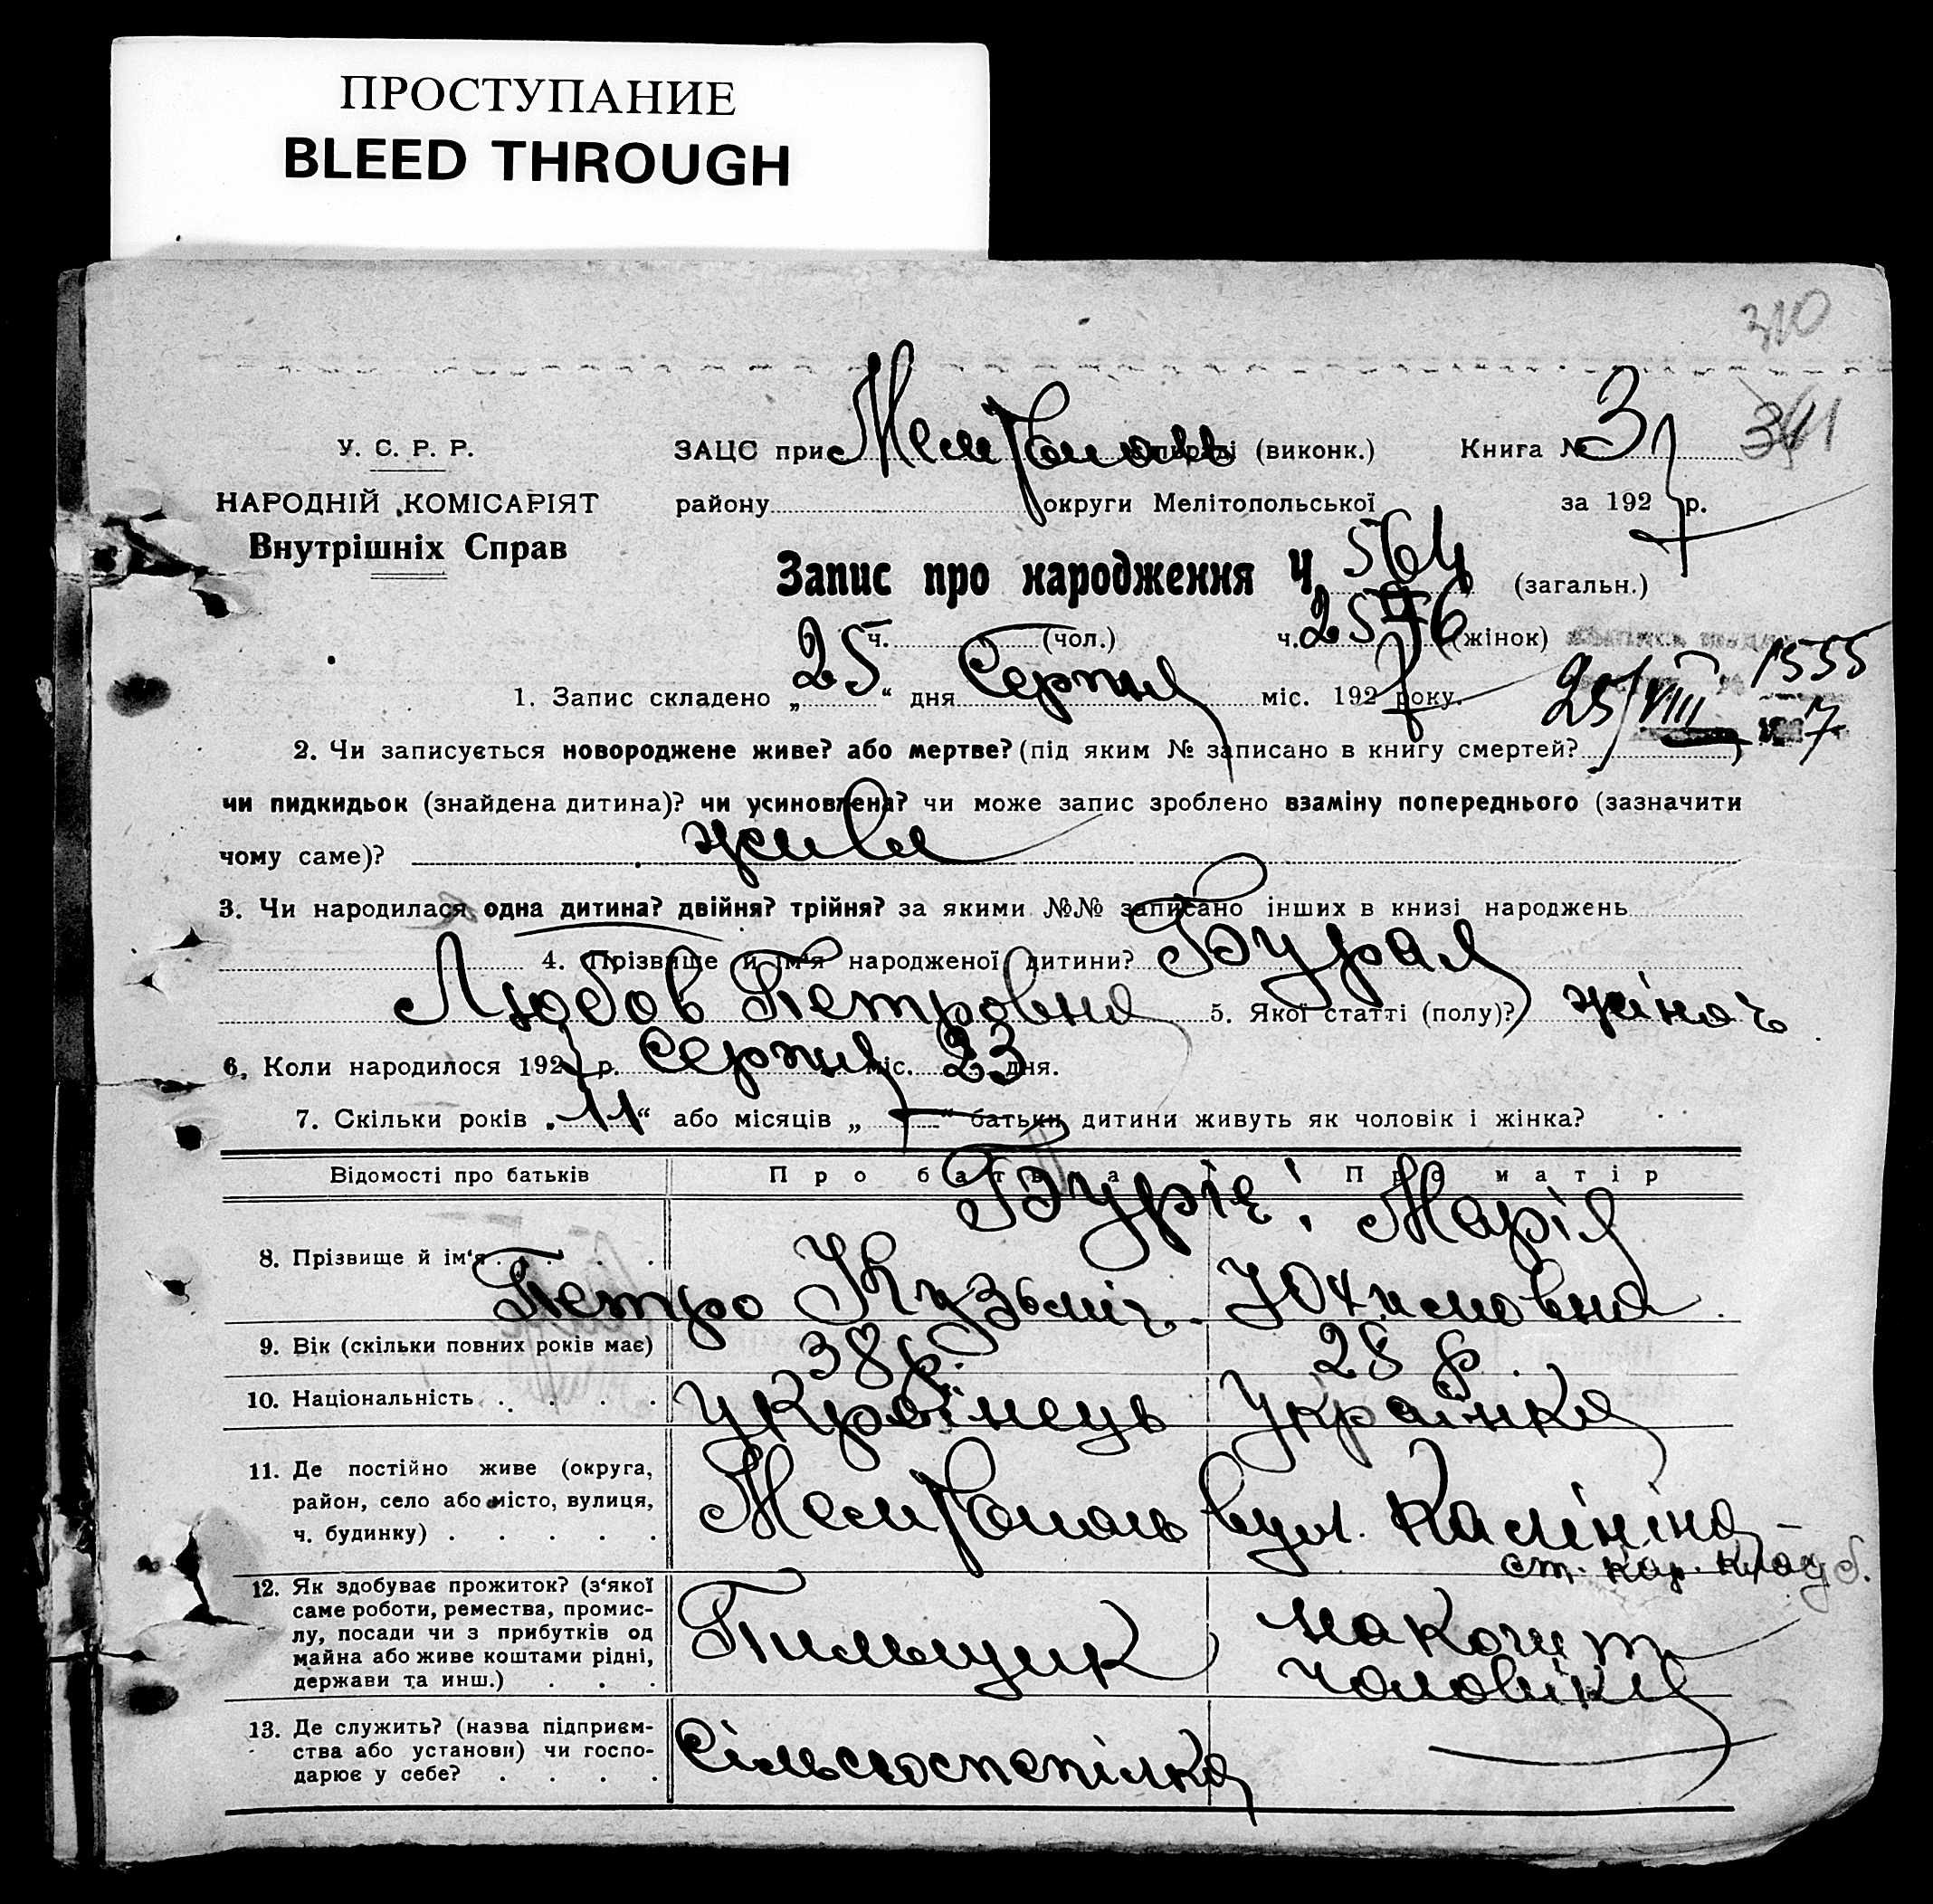 ПРОСТУПАНИЕ
BLEED THROUGH
310
341
У. С. Р. Р.
НАРОДНІЙ КОМІСАРІЯТ
Внутрішніх Справ
ЗАЦС при Мелітополь (виконк.) Книга № 3
району округи Мелітопольської за 1927 р.
Запис про народження Ч. 564 (загальн.)
ч. (чол.) ч. 257 (жінок)
1. Запис складено „25“ дня Серпня міс. 1927 року.
1555
25/VIII 7
2. Чи записується новороджене живе? або мертве? (під яким № записано в книгу смертей?
чи пидкидьок (знайдена дитина)? чи усиновлена? чи може запис зроблено взаміну попереднього (зазначити
чому саме)? живе
3. Чи народилася одна дитина? двійня? трійня? за якими №№ записано інших в книзі народжень
4. Прізвище й ім'я народженої дитини? Бурая
Любов Петровна 5. Якої статті (полу)? жіноч
6. Коли народилося 1927 р. Серпня міс. 23 дня.
7. Скільки років „11“ або місяців „ “ батьки дитини живуть як чоловік і жінка?
Відомості про батьків Про батька Про матір
Буріє: Марія
8. Прізвище й ім'я Петро Кузьміч. Юхимовна
9. Вік (скільки повних років має) 38 р. 28 р.
10. Національність Українець Українка
11. Де постійно живе (округа,
район, село або місто, вулиця,
ч. будинку) Мелітополь вул. Калініна
ст. кар. клад б.
12. Як здобуває прожиток? (з'якої
саме роботи, ремества, промис-
лу, посади чи з прибутків од
майна або живе коштами рідні,
держави та инш.) Пильщик на кошт
чоловіка
13. Де служить? (назва підприєм-
ства або установи) чи госпо-
дарює у себе? Сільгоспспілка